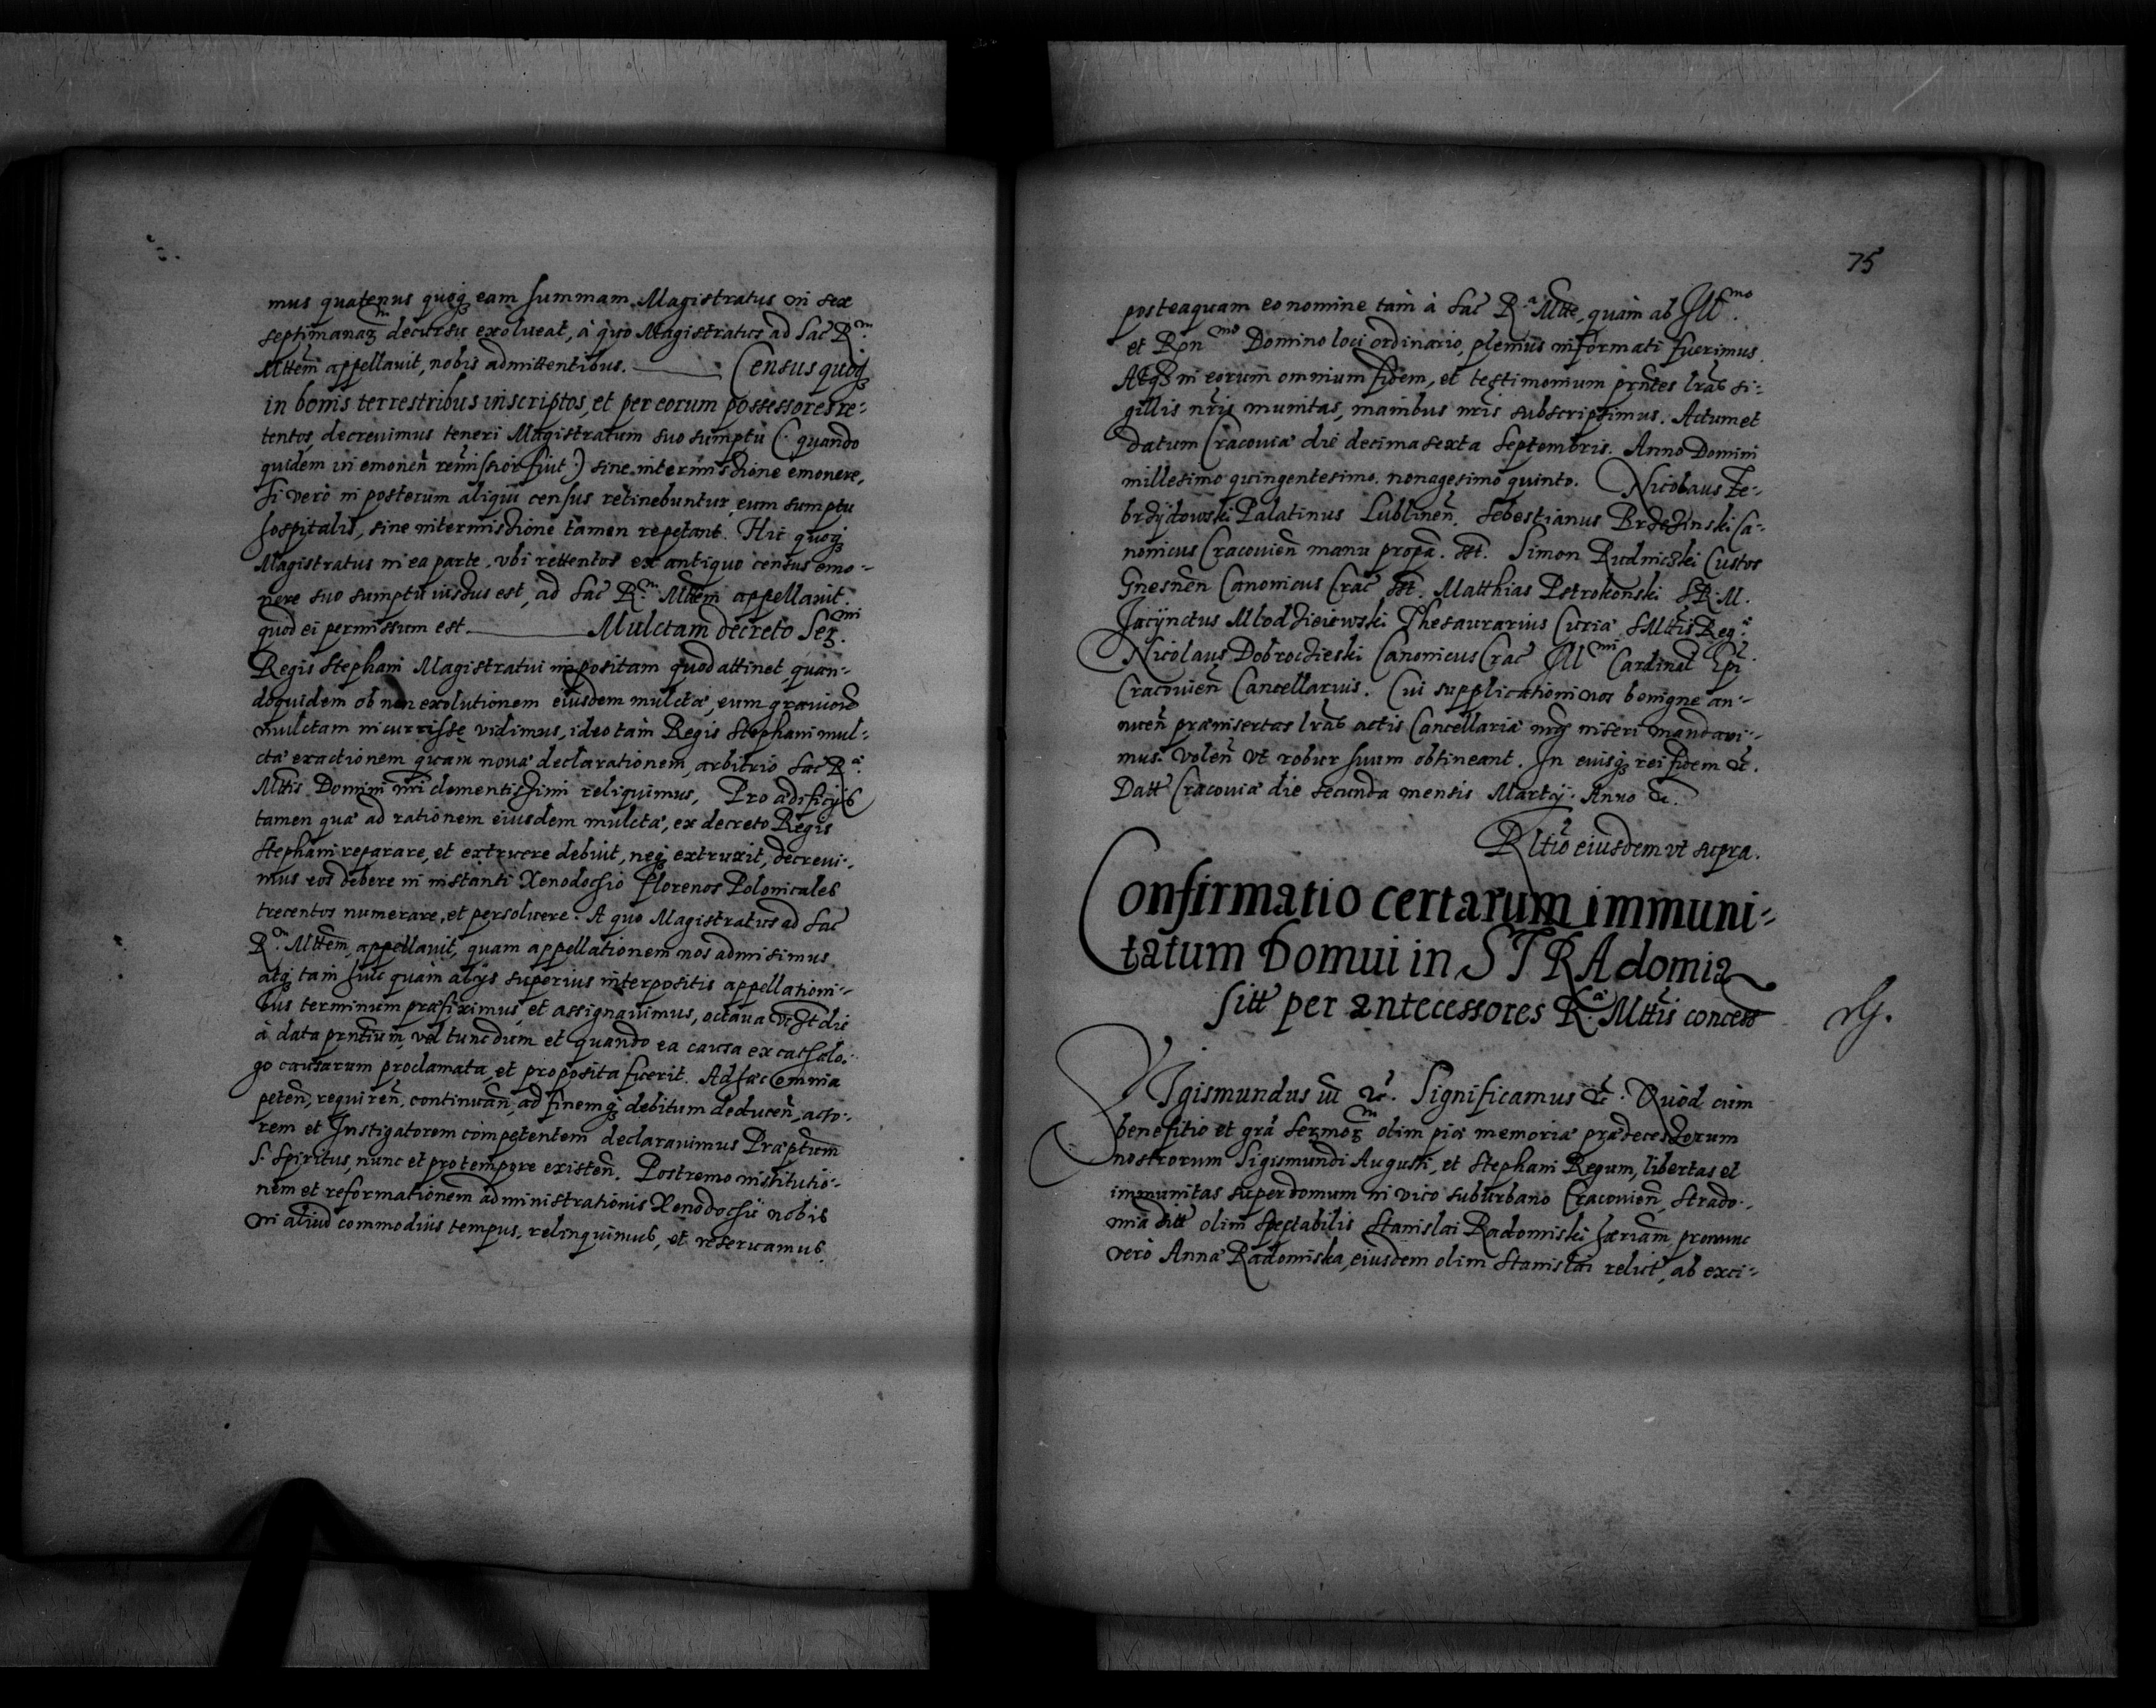 mus quatenus quoq₃ eam summam Magistratus in sex
septimanaꝝ decursu exolueat, à quo Magistratus ad Sac R.m
Mttem appellauit, nobis admittentibus. Census quoq₃
in bonis terrestribus inscriptos, et per eorum possessores re-
tentos, decreuimus teneri Magistratum suo sumptu (quando
quidem in emonen̄ sine intermissione emonere,
Si verò in posterum aliqui census retinebuntur, eum sumptu
hospitalis, sine intermissione tamen repetant. Hic quoq₃
Magistratus in ea parte, vbi rettentos ex antiquo census emo-
nere suo sumptu iussus est, ad Sac R.m Mttem appellauit.
quod ei permissum est. Mulctam decreto Ser.mi
Regis Stephani Magistratui impositam quod attinet, quan-
doquidem ob non exolutionem eiusdem mulctæ, eum grauiorē
mulctam incurrisse vidimus, ideo tàm Regis Stephani mul-
ctæ exactionem quam nouæ declarationem, arbitrio Sac R.æ
Mttis Domini nr̄i clementissimi reliquimus, Pro ædificijs
tamen quæ ad rationem eiusdem mulctæ, ex decreto Regis
Stephani reparare, et extruere debuit, neq₃ extruxit, decreui-
mus eos debere in instanti Xenodochio florenos Polonicales
trecentos numerare, et persoluere. A quo Magistratus ad Sac
R.m Mttem, appellauit, quam appellationem nos admisimus
atq₃ tam huic quàm alijs superius interpositis appellationi-
bus terminum præfiximus, et assignauimus, octaua die
à data pn̄tium, vel tunc dum et quando ea causa ex cathalo-
go causarum proclamata, et proposita fuerit. Ad hæc omnia
peten̄, requiren̄, continuan̄, ad finemq₃ debitum deducen̄, acto-
rem et Instigatorem competentem declarauimus Præptum
S. Spiritus, nunc et pro tempore existen̄. Postremo institutio-
nem et reformationem administrationis Xenodochii nobis
in aliud commodius tempus, relinquimus, et reseruamus.
75
posteaquam eo nomine tàm à Sac R.a Mtte, quàm ab Ill.mo
et Rꝑn mo Domino loci ordinario, plenius informati fuerimus.
Atq₃ in eorum omnium fidem, et testimonium pr̄ntes lr̄as si-
gillis nr̄is munitas, manibus nr̄is subscripsimus. Actum et
datum Cracouiæ die decima sexta Septembris. Anno Domini
millesimo quingentesimo. nonagesimo quinto. Nicolaus Ze-
brzÿdowski Palatinus Lublinen̄. Sebestianus Ca-
nonicus Cracouien̄ manu propa. sst. Simon Rudnicski Custos
Gnesnen̄ Canonicus Crac sst. Matthias Pstrokonski S R. M.
Jacÿnctus Mlodzieiewski Thesaurarius Curiæ S Mttis Reg.æ
Nicolaus Dobrocieski Canonicus Crac Ill.mi Cardinal Epi
Cracouien̄ Cancellarius. Cui supplicationi nos benigne an-
nuen̄ præinsertas lr̄as actis Cancellariæ nr̄æ inseri mandaui-
mus. volen̄ vt robur suum obtineant. In cuius rei fidem &c.
Datt Cracouiæ die secunda mensis Martij. Anno &c.
Rltio eiusdem vt supra.
Confirmatio certarum immuni-
tatum Domui in STRAdomia
Sitt per antecessores R.æ Mttis concess
Sigismundus iii &c. Significamus &c. Quòd cùm
benefitio et gr̄a Sermoꝝ olim piæ memoriæ prædecessorum
nostrorum Sigismundi Augusti, et Stephani Regum, libertas et
immunitas super domum in vico suburbano Cracouien̄, Strado-
mia sitt olim Spectabilis Stanislai Radomiski pronunc
verò Annæ Radomiska, eiusdem olim Stanislai relict, ab exci-